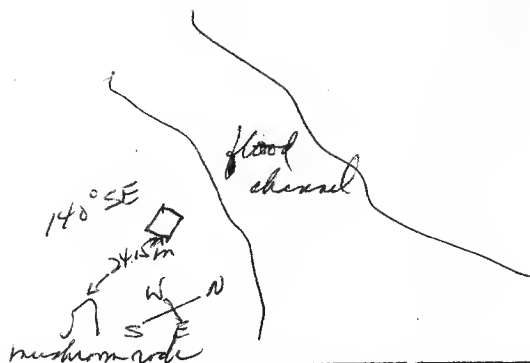 flood
channel
140° SE
24.15 m
W N
S E
mushroom rock